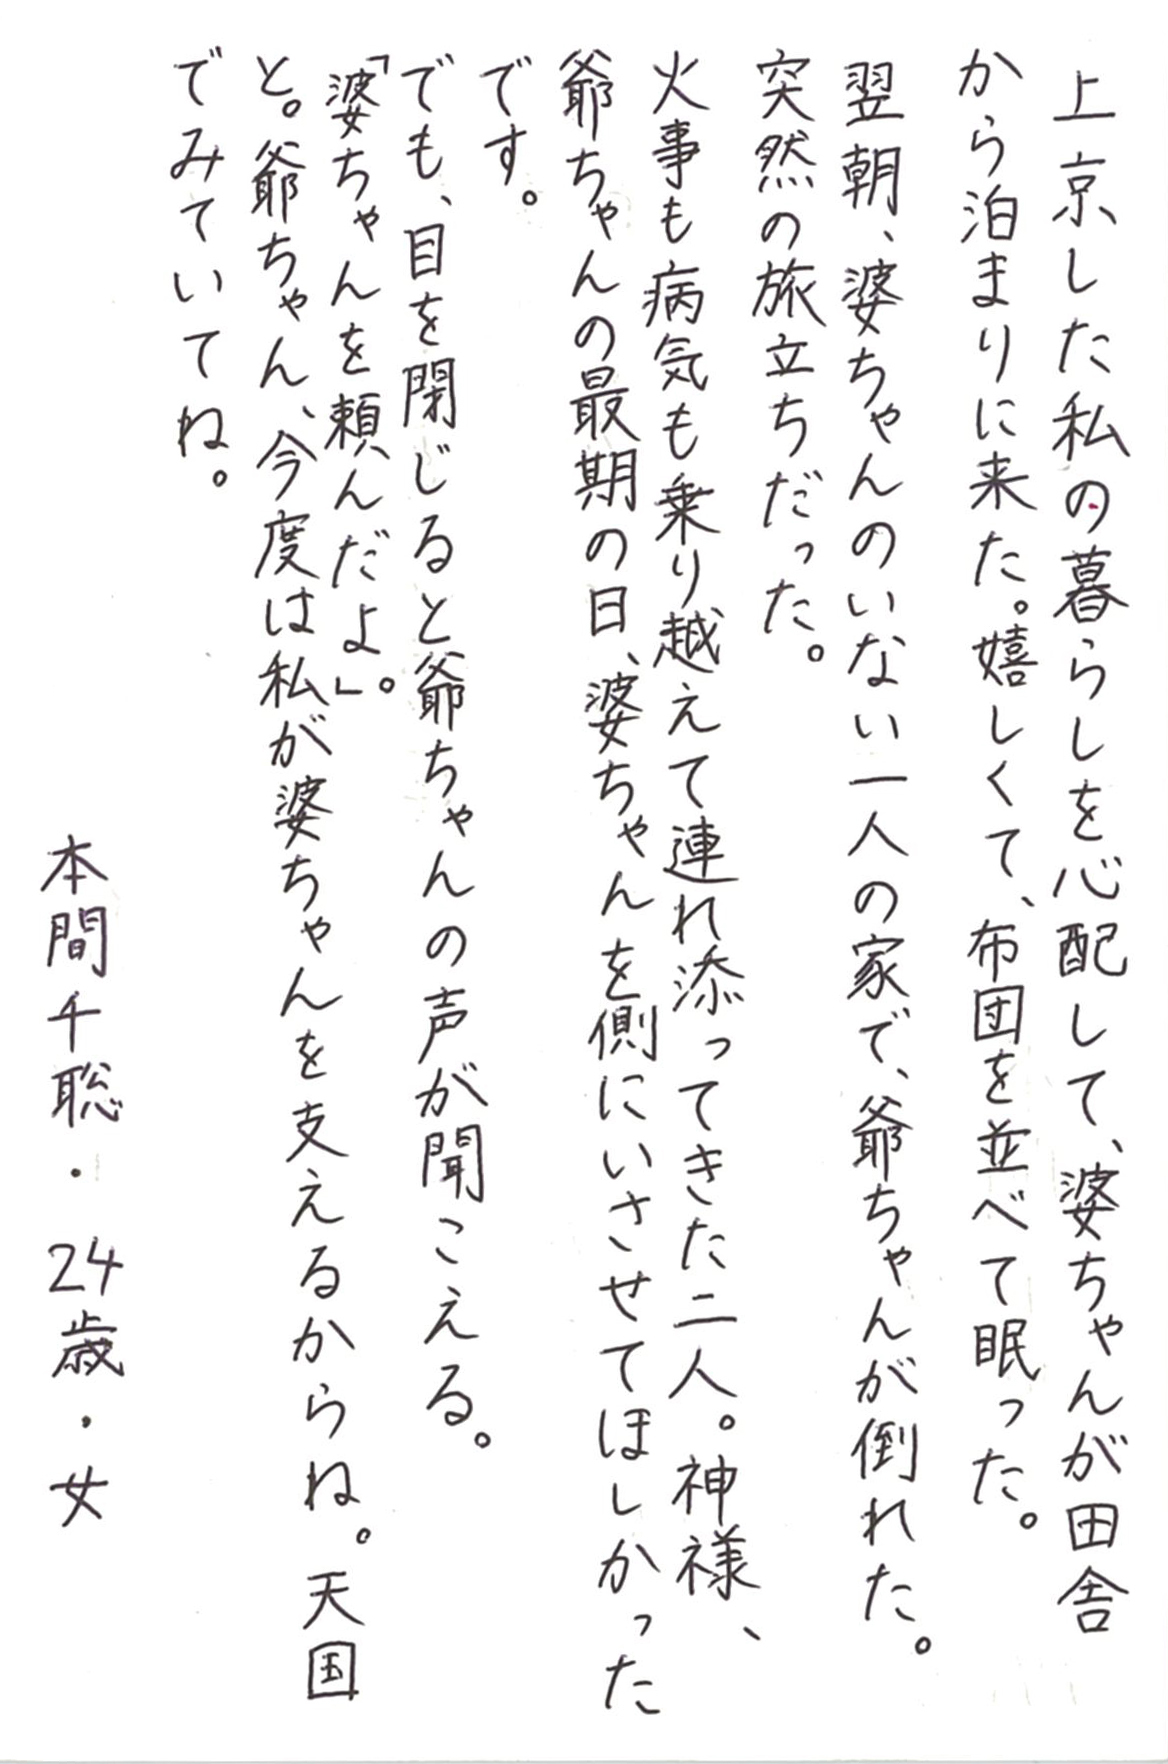 上京した私の暮らしを心配して、婆ちゃんが田舎
から泊まりに来た。嬉しくて、布団を並べて眠った。
翌朝、婆ちゃんのいない一人の家で、爺ちゃんが倒れた。
突然の旅立ちだった。
火事も病気も乗り越えて連れ添ってきた二人。神様、
爺ちゃんの最期の日、婆ちゃんを側にいさせてほしかった
です。
でも、目を閉じると爺ちゃんの声が聞こえる。
「婆ちゃんを頼んだよ」。
と。爺ちゃん、今度は私が婆ちゃんを支えるからね。天国
でみていてね。
本間千聡・24歳・女